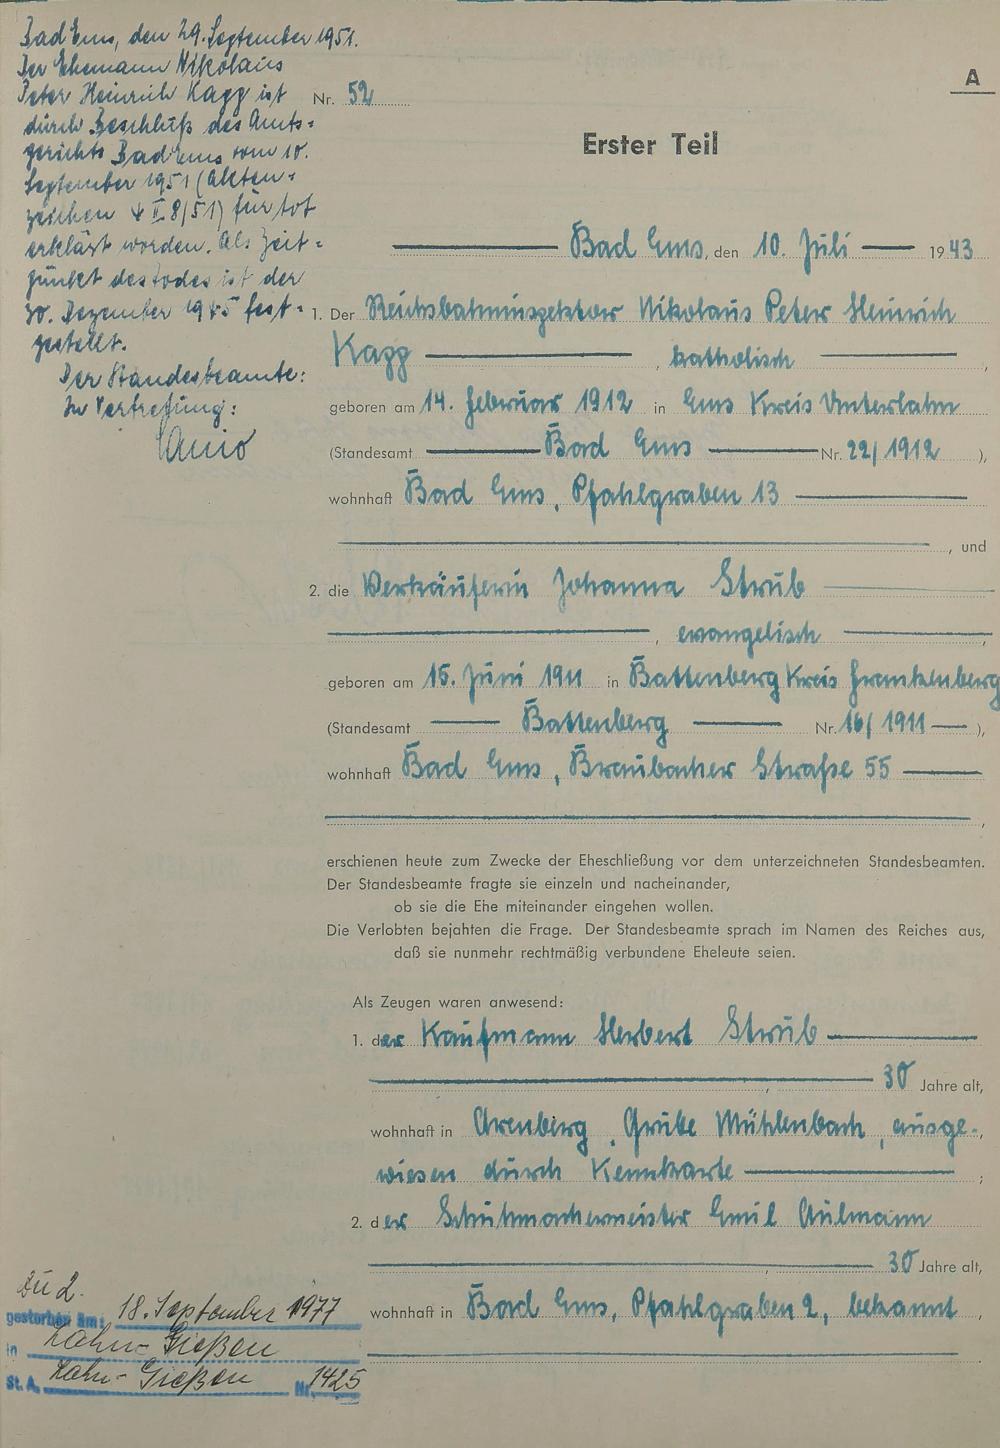 Bad Ems, den 29. September 1951.
Der Ehemann Nikolaus
Peter Heinrich Kagg ist
durch Beschluß des Amts=
gerichts Bad Ems vom 10.
September 1951 (Akten=
zeichen 4 II 8/51) für tot
erklärt worden. Als Zeit=
punkt des Todes ist der
30. Dezember 1945 fest=
gestellt.
Der Standesbeamte:
In Vertretung:
A
Nr. 52
Erster Teil
Bad Ems, den 10. Juli 1943
1. Der Reichsbahninspektor Nikolaus Peter Heinrich
Kagg, katholisch,
geboren am 14. Februar 1912 in Ems Kreis Unterlahn
(Standesamt Bad Ems Nr. 22/1912),
wohnhaft Bad Ems, Pfahlgraben 13
, und
2. die Verkäuferin Johanna Strub
, evangelisch,
geboren am 15. Juni 1911 in Battenberg Kreis Frankenberg
(Standesamt Battenberg Nr. 16/1911),
wohnhaft Bad Ems, Braubacher Straße 55
,
erschienen heute zum Zwecke der Eheschließung vor dem unterzeichneten Standesbeamten.
Der Standesbeamte fragte sie einzeln und nacheinander,
ob sie die Ehe miteinander eingehen wollen.
Die Verlobten bejahten die Frage. Der Standesbeamte sprach im Namen des Reiches aus,
daß sie nunmehr rechtmäßig verbundene Eheleute seien.
Als Zeugen waren anwesend:
1. der Kaufmann Herbert Strub
, 30 Jahre alt,
wohnhaft in Arenberg, Grube Mühlenbach, ausge-
wiesen durch Kennkarte;
2. der Schuhmachermeister Emil Aulmann
, 30 Jahre alt,
wohnhaft in Bad Ems, Pfahlgraben 2, bekannt,
Zu 2.
gestorben am: 18. September 1977
in Lahn-Gießen
St. A. Lahn-Gießen Nr. 1425